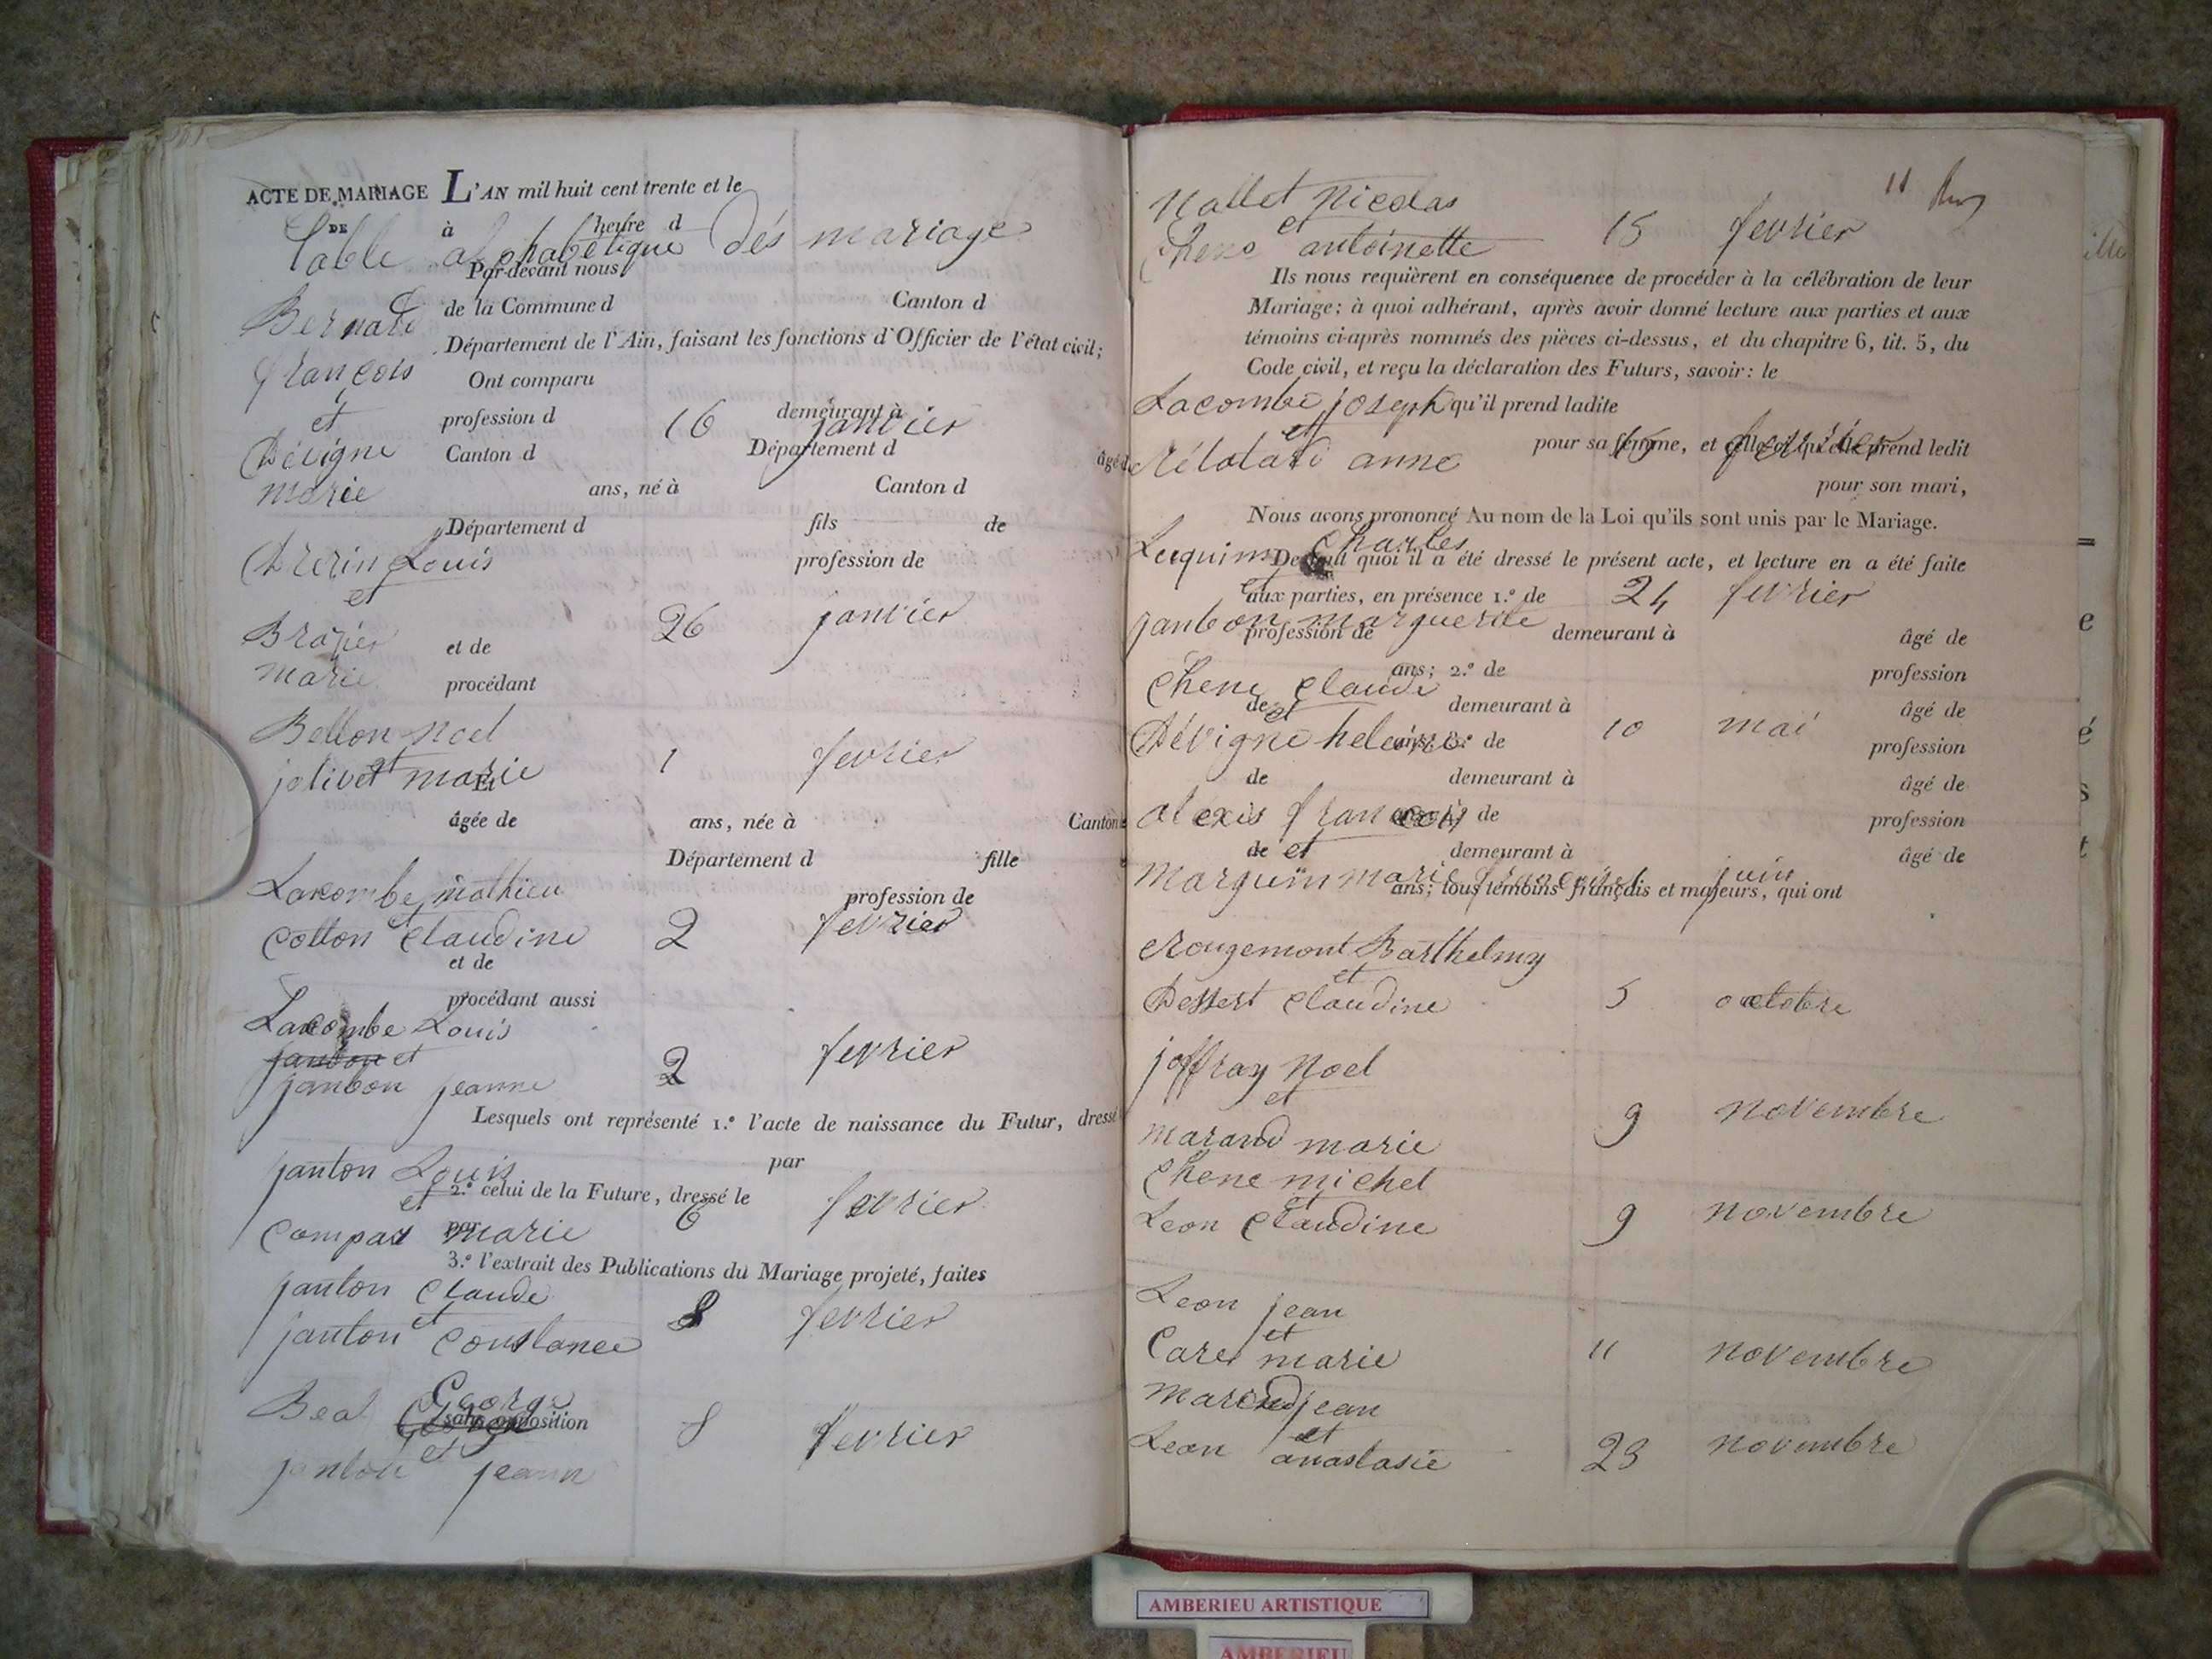 ACTE DE MARIAGE L'AN mil huit cent trente et le
DE à heure d
Table alphabétique dés mariage
Par-devant nous
Bernard de la Commune d Canton d
Département de l'Ain, faisant les fonctions d'Officier de l'état civil;
françois Ont comparu
et profession d 16 demeurant à janvier
Dévigne Canton d Département d âgé d
marie ans, né à Canton d
Département d fils de
Drerin Louis profession de
et
Brazier et de 26 janvier
marie procédant
Bellon noel
et 1 fevrier
jolivet marie Et
âgée de ans, née à Canton
Département d fille
Lacombe mathieu profession de
et 2 fevrier
cotton claudine
et de
procédant aussi
Lacombe Louis
janbon et 2 fevrier
janbon jeanne
Lesquels ont représenté 1.º l'acte de naissance du Futur, dressé
par
janton Louis
et 2.º celui de la Future, dressé le 6 fevrier
marie par
3.º l'extrait des Publications du Mariage projeté, faites
janton claude
et 8 fevrier
janton constance
Beal George
sans opposition 8 fevrier
et
janton jeann
11
nallet nicolas
et 15 fevrier
chene antoinette
Ils nous requièrent en conséquence de procéder à la célébration de leur
Mariage; à quoi adhérant, après avoir donné lecture aux parties et aux
témoins ci-après nommés des pièces ci-dessus, et du chapitre 6, tit. 5, du
Code civil, et reçu la déclaration des Futurs, savoir: le
Lacombe joseph qu'il prend ladite
et pour sa femme, et celle-ci qu'elle prend ledit
15 fevrier
anne
pour son mari,
Nous avons prononcé Au nom de la Loi qu'ils sont unis par le Mariage.
Luquin charles
De tout quoi il a été dressé le présent acte, et lecture en a été faite
et aux parties, en présence 1.º de 24 fevrier
janbon marguerite
profession de demeurant à âgé de
ans; 2.º de profession
chene claude
de et demeurant à âgé de
Dévigne heleine ans; 3.º de 10 mai profession
de demeurant à âgé de
alexis françois ans; 4.º de profession
de et demeurant à âgé de
Marguin marie françoise juin
ans; tous témoins français et majeurs, qui ont
Rougemont Barthelmy
et
Dessert claudine 5 octobre
joffray noel
et 9 novembre
marand marie
chene michel
et 9 novembre
Leon claudine
Leon jean
et
marie 11 novembre
marand jean
et
Leon anastasie 23 novembre
AMBERIEU ARTISTIQUE
AMBERIEU